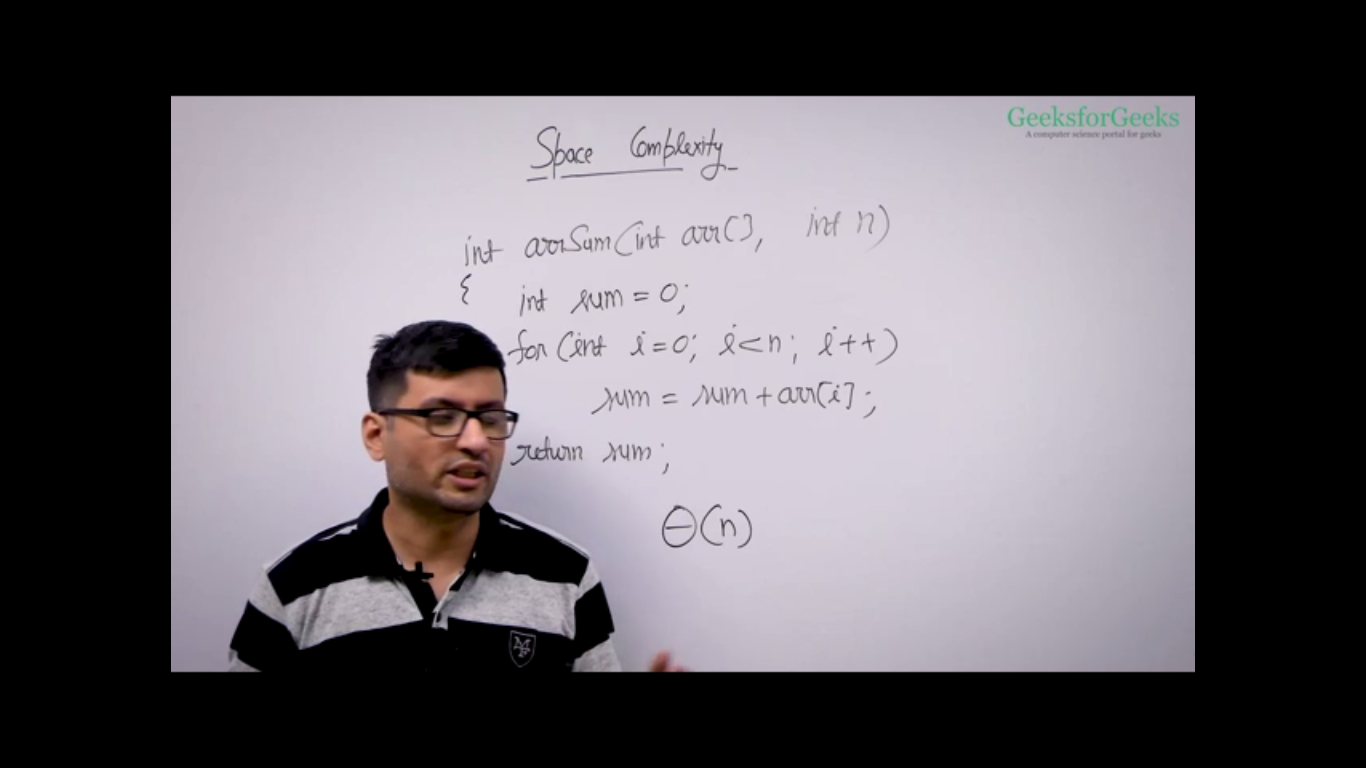 GeeksforGeeks
A computer science portal for geeks
Space Complexity
int arrSum(int arr[], int n)
{ int sum = 0;
for (int i=0; i<n; i++)
sum = sum + arr[i];
return sum;
Θ(n)